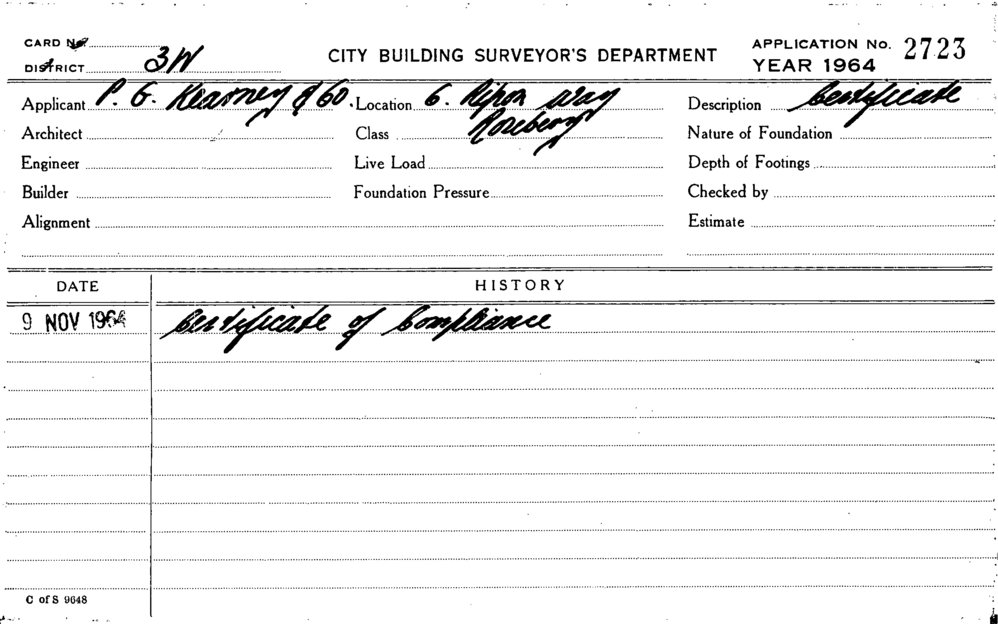 CARD No.
DISTRICT 3W
CITY BUILDING SURVEYOR'S DEPARTMENT
APPLICATION No. 2723
YEAR 1964
Applicant P. G. Kearney & Co. Location 6. Ripon Way Description Certificate
Architect Class Rosebery Nature of Foundation
Engineer Live Load Depth of Footings
Builder Foundation Pressure Checked by
Alignment Estimate
DATE HISTORY
9 NOV 1964 Certificate of Compliance
C of S 9648